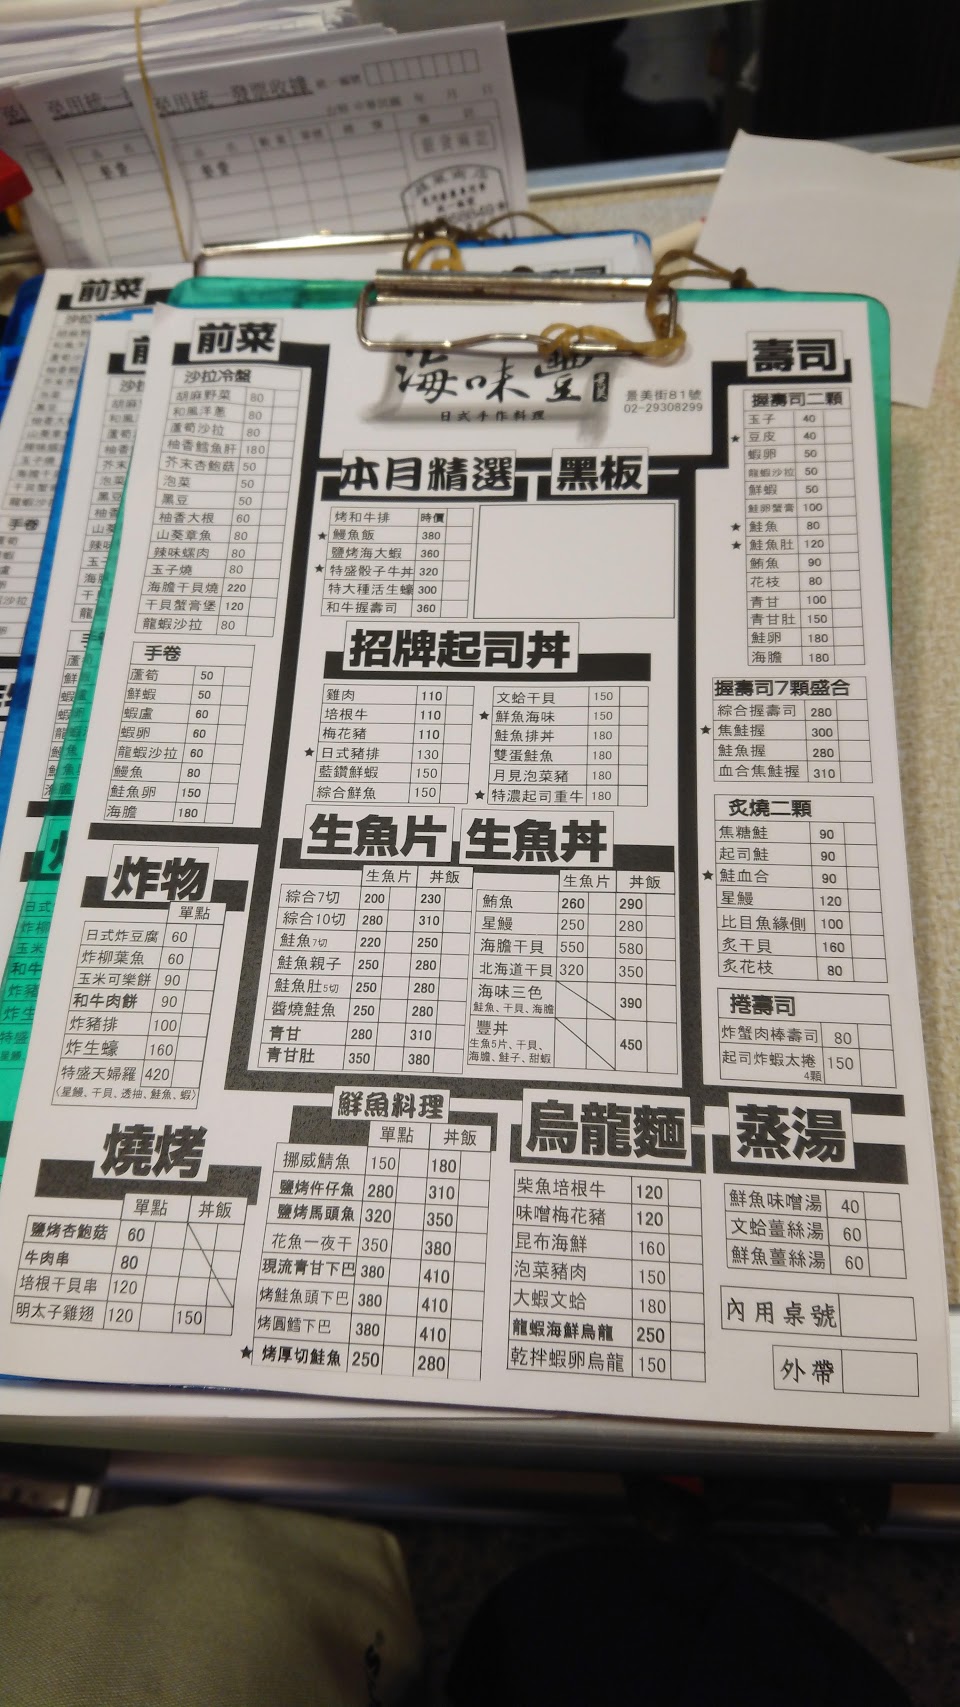 免用統一發票收據
前菜
沙拉冷盤
胡麻野菜 80
和風洋蔥 80
蘆筍沙拉 80
柚香鱈魚肝 180
芥末杏鮑菇 50
泡菜 50
黑豆 50
柚香大根 60
山葵章魚 80
辣味螺肉 80
玉子燒 80
海膽干貝燒 220
干貝蟹膏堡 120
龍蝦沙拉 80
手卷
蘆筍 50
鮮蝦 50
蝦蘆 60
蝦卵 60
龍蝦沙拉 60
鰻魚 80
鮭魚卵 150
海膽 180
炸物
單點
日式炸豆腐 60
炸柳葉魚 60
玉米可樂餅 90
和牛肉餅 90
炸豬排 100
炸生蠔 160
特盛天婦羅 420
〈星鰻、干貝、透抽、鮭魚、蝦〉
燒烤
單點 丼飯
鹽烤杏鮑菇 60
牛肉串 80
培根干貝串 120
明太子雞翅 120 150
海味豐
日式手作料理
景美街81號
02-29308299
本月精選 黑板
烤和牛排 時價
★ 鰻魚飯 380
鹽烤海大蝦 360
★ 特盛骰子牛丼 320
特大種活生蠔 300
和牛握壽司 360
招牌起司丼
雞肉 110
培根牛 110
梅花豬 110
★ 日式豬排 130
藍鑽鮮蝦 150
綜合鮮魚 150
文蛤干貝 150
★ 鮮魚海味 150
鮭魚排丼 180
雙蛋鮭魚 180
月見泡菜豬 180
★ 特濃起司重牛 180
生魚片 生魚丼
生魚片 丼飯
綜合7切 200 230
綜合10切 280 310
鮭魚7切 220 250
鮭魚親子 250 280
鮭魚肚5切 250 280
醬燒鮭魚 250 280
青甘 280 310
青甘肚 350 380
生魚片 丼飯
鮪魚 260 290
星鰻 250 280
海膽干貝 550 580
北海道干貝 320 350
海味三色 390
鮭魚、干貝、海膽
豐丼 450
生魚5片、干貝、
海膽、鮭子、甜蝦
鮮魚料理
單點 丼飯
挪威鯖魚 150 180
鹽烤件仔魚 280 310
鹽烤馬頭魚 320 350
花魚一夜干 350 380
現流青甘下巴 380 410
烤鮭魚頭下巴 380 410
烤圓鱈下巴 380 410
★ 烤厚切鮭魚 250 280
烏龍麵
柴魚培根牛 120
味噌梅花豬 120
昆布海鮮 160
泡菜豬肉 150
大蝦文蛤 180
龍蝦海鮮烏龍 250
乾拌蝦卵烏龍 150
壽司
握壽司二顆
玉子 40
★ 豆皮 40
蝦卵 50
龍蝦沙拉 50
鮮蝦 50
鮭卵蟹膏 100
★ 鮭魚 80
★ 鮭魚肚 120
鮪魚 90
花枝 80
青甘 100
青甘肚 150
鮭卵 180
海膽 180
握壽司7顆盛合
綜合握壽司 280
★ 焦鮭握 300
鮭魚握 280
血合焦鮭握 310
炙燒二顆
焦糖鮭 90
起司鮭 90
★ 鮭血合 90
星鰻 120
比目魚緣側 100
炙干貝 160
炙花枝 80
捲壽司
炸蟹肉棒壽司 80
起司炸蝦太捲 150
4顆
蒸湯
鮮魚味噌湯 40
文蛤薑絲湯 60
鮮魚薑絲湯 60
內用桌號
外帶